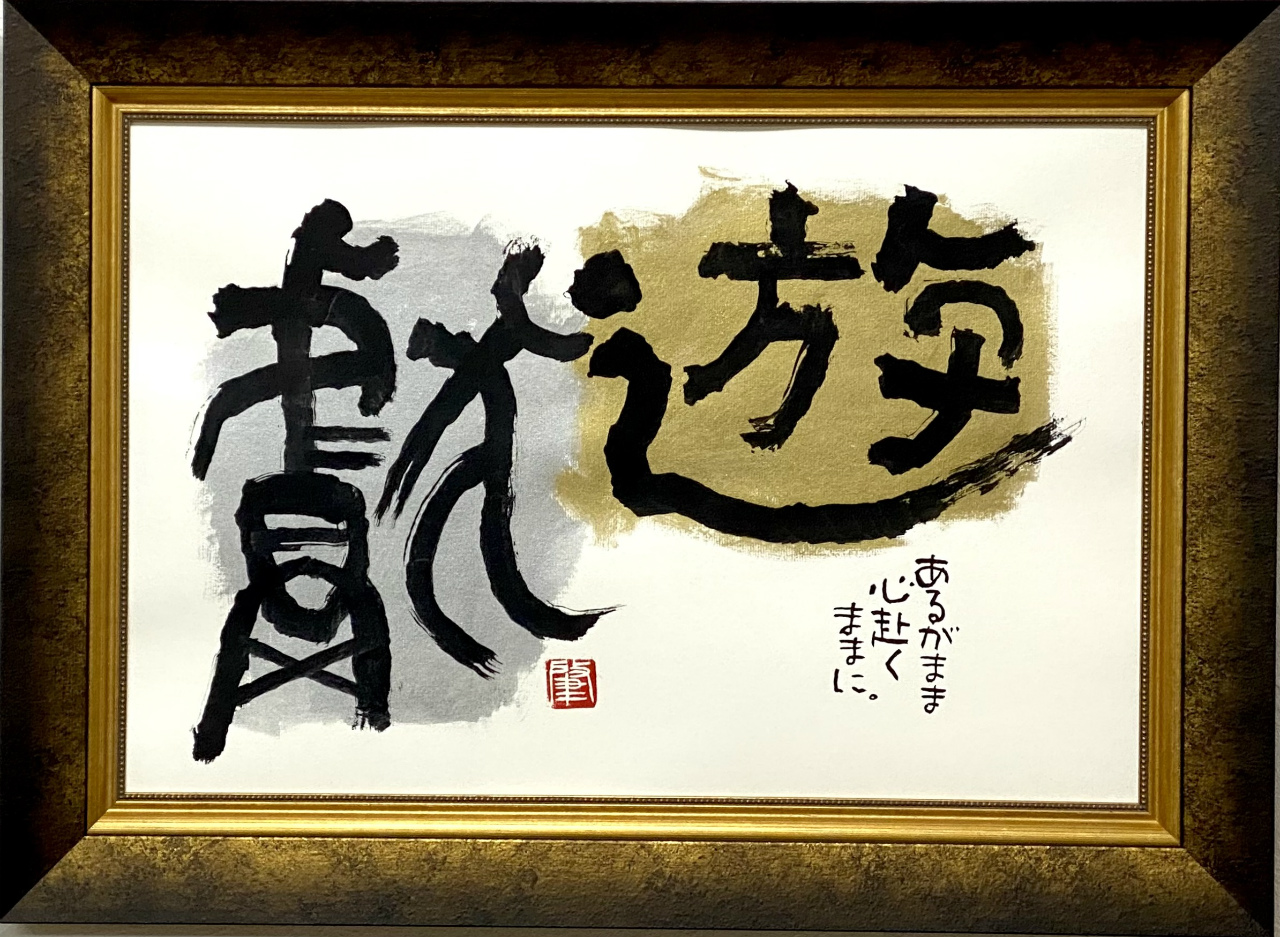 遊
あるがまま
心赴く
ままに。
肇